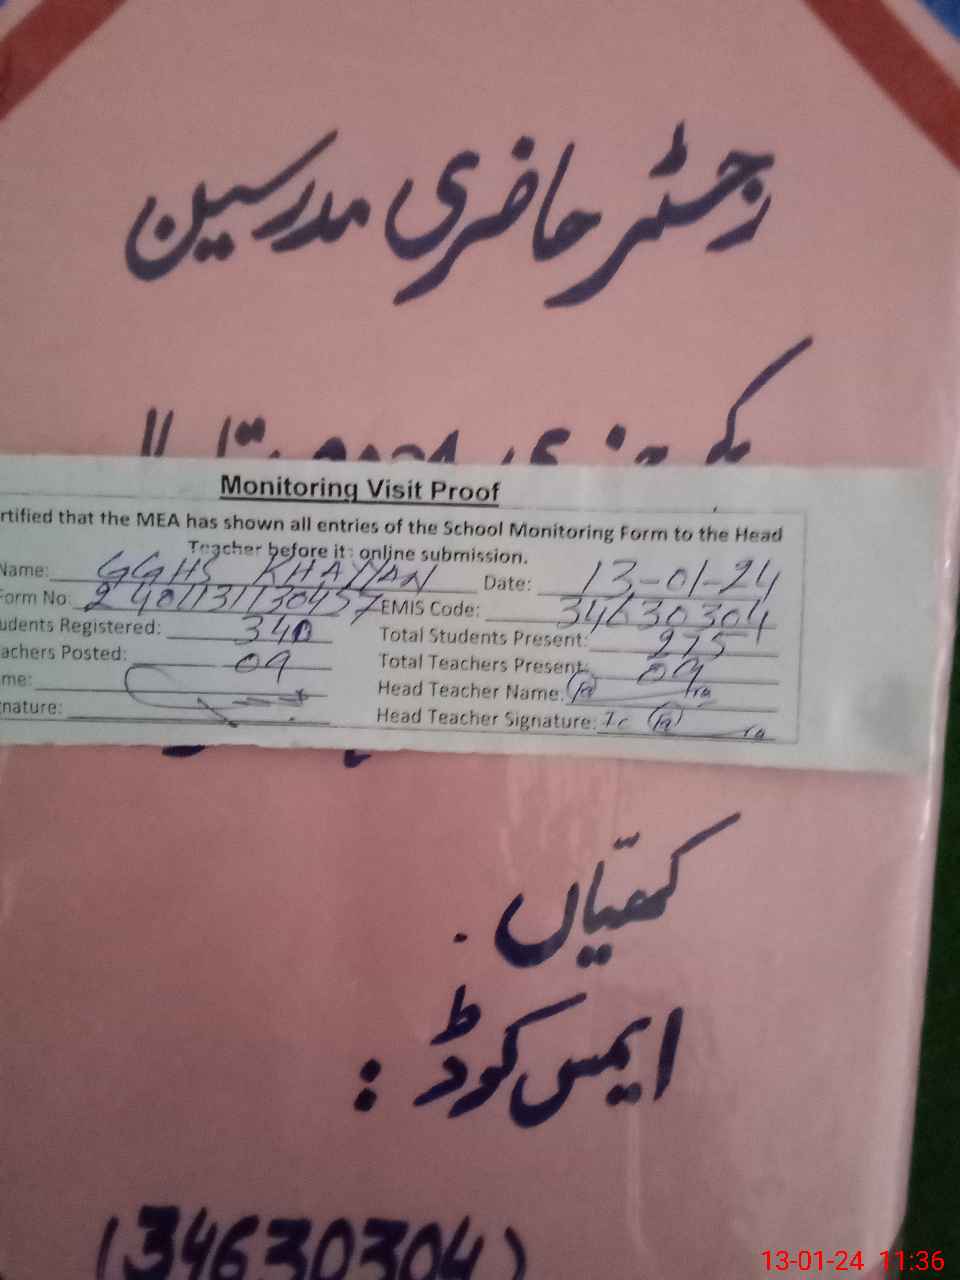 رجسٹر حاضری مدرسین
یکم جنوری
Monitoring Visit Proof
rtified that the MEA has shown all entries of the School Monitoring Form to the Head
Teacher before it's online submission.
Name: GGHS KHAYIAN Date: 13-01-24
Form No: EMIS Code: 34630304
udents Registered: 340 Total Students Present: 275
achers Posted: 09 Total Teachers Present: 09
me: Head Teacher Name:
nature: Head Teacher Signature:
کھتیاں .
ایمس کوڈ :
(34630304)
13-01-24 11:36